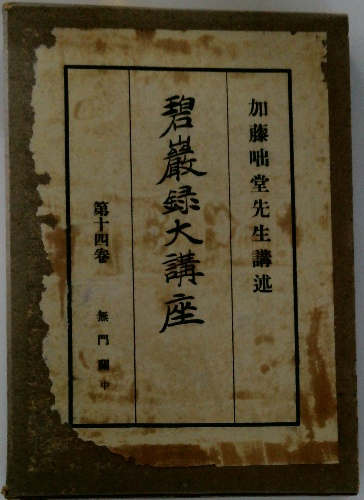 加藤咄堂先生講述
碧巖録大講座
第十四卷
無門關中